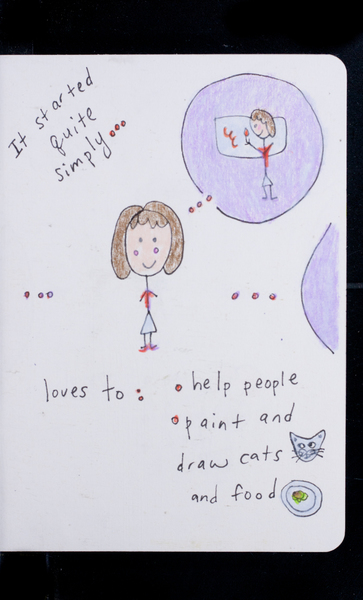 It started
quite
simply...
loves to :
• help people
• paint and
draw cats
and food